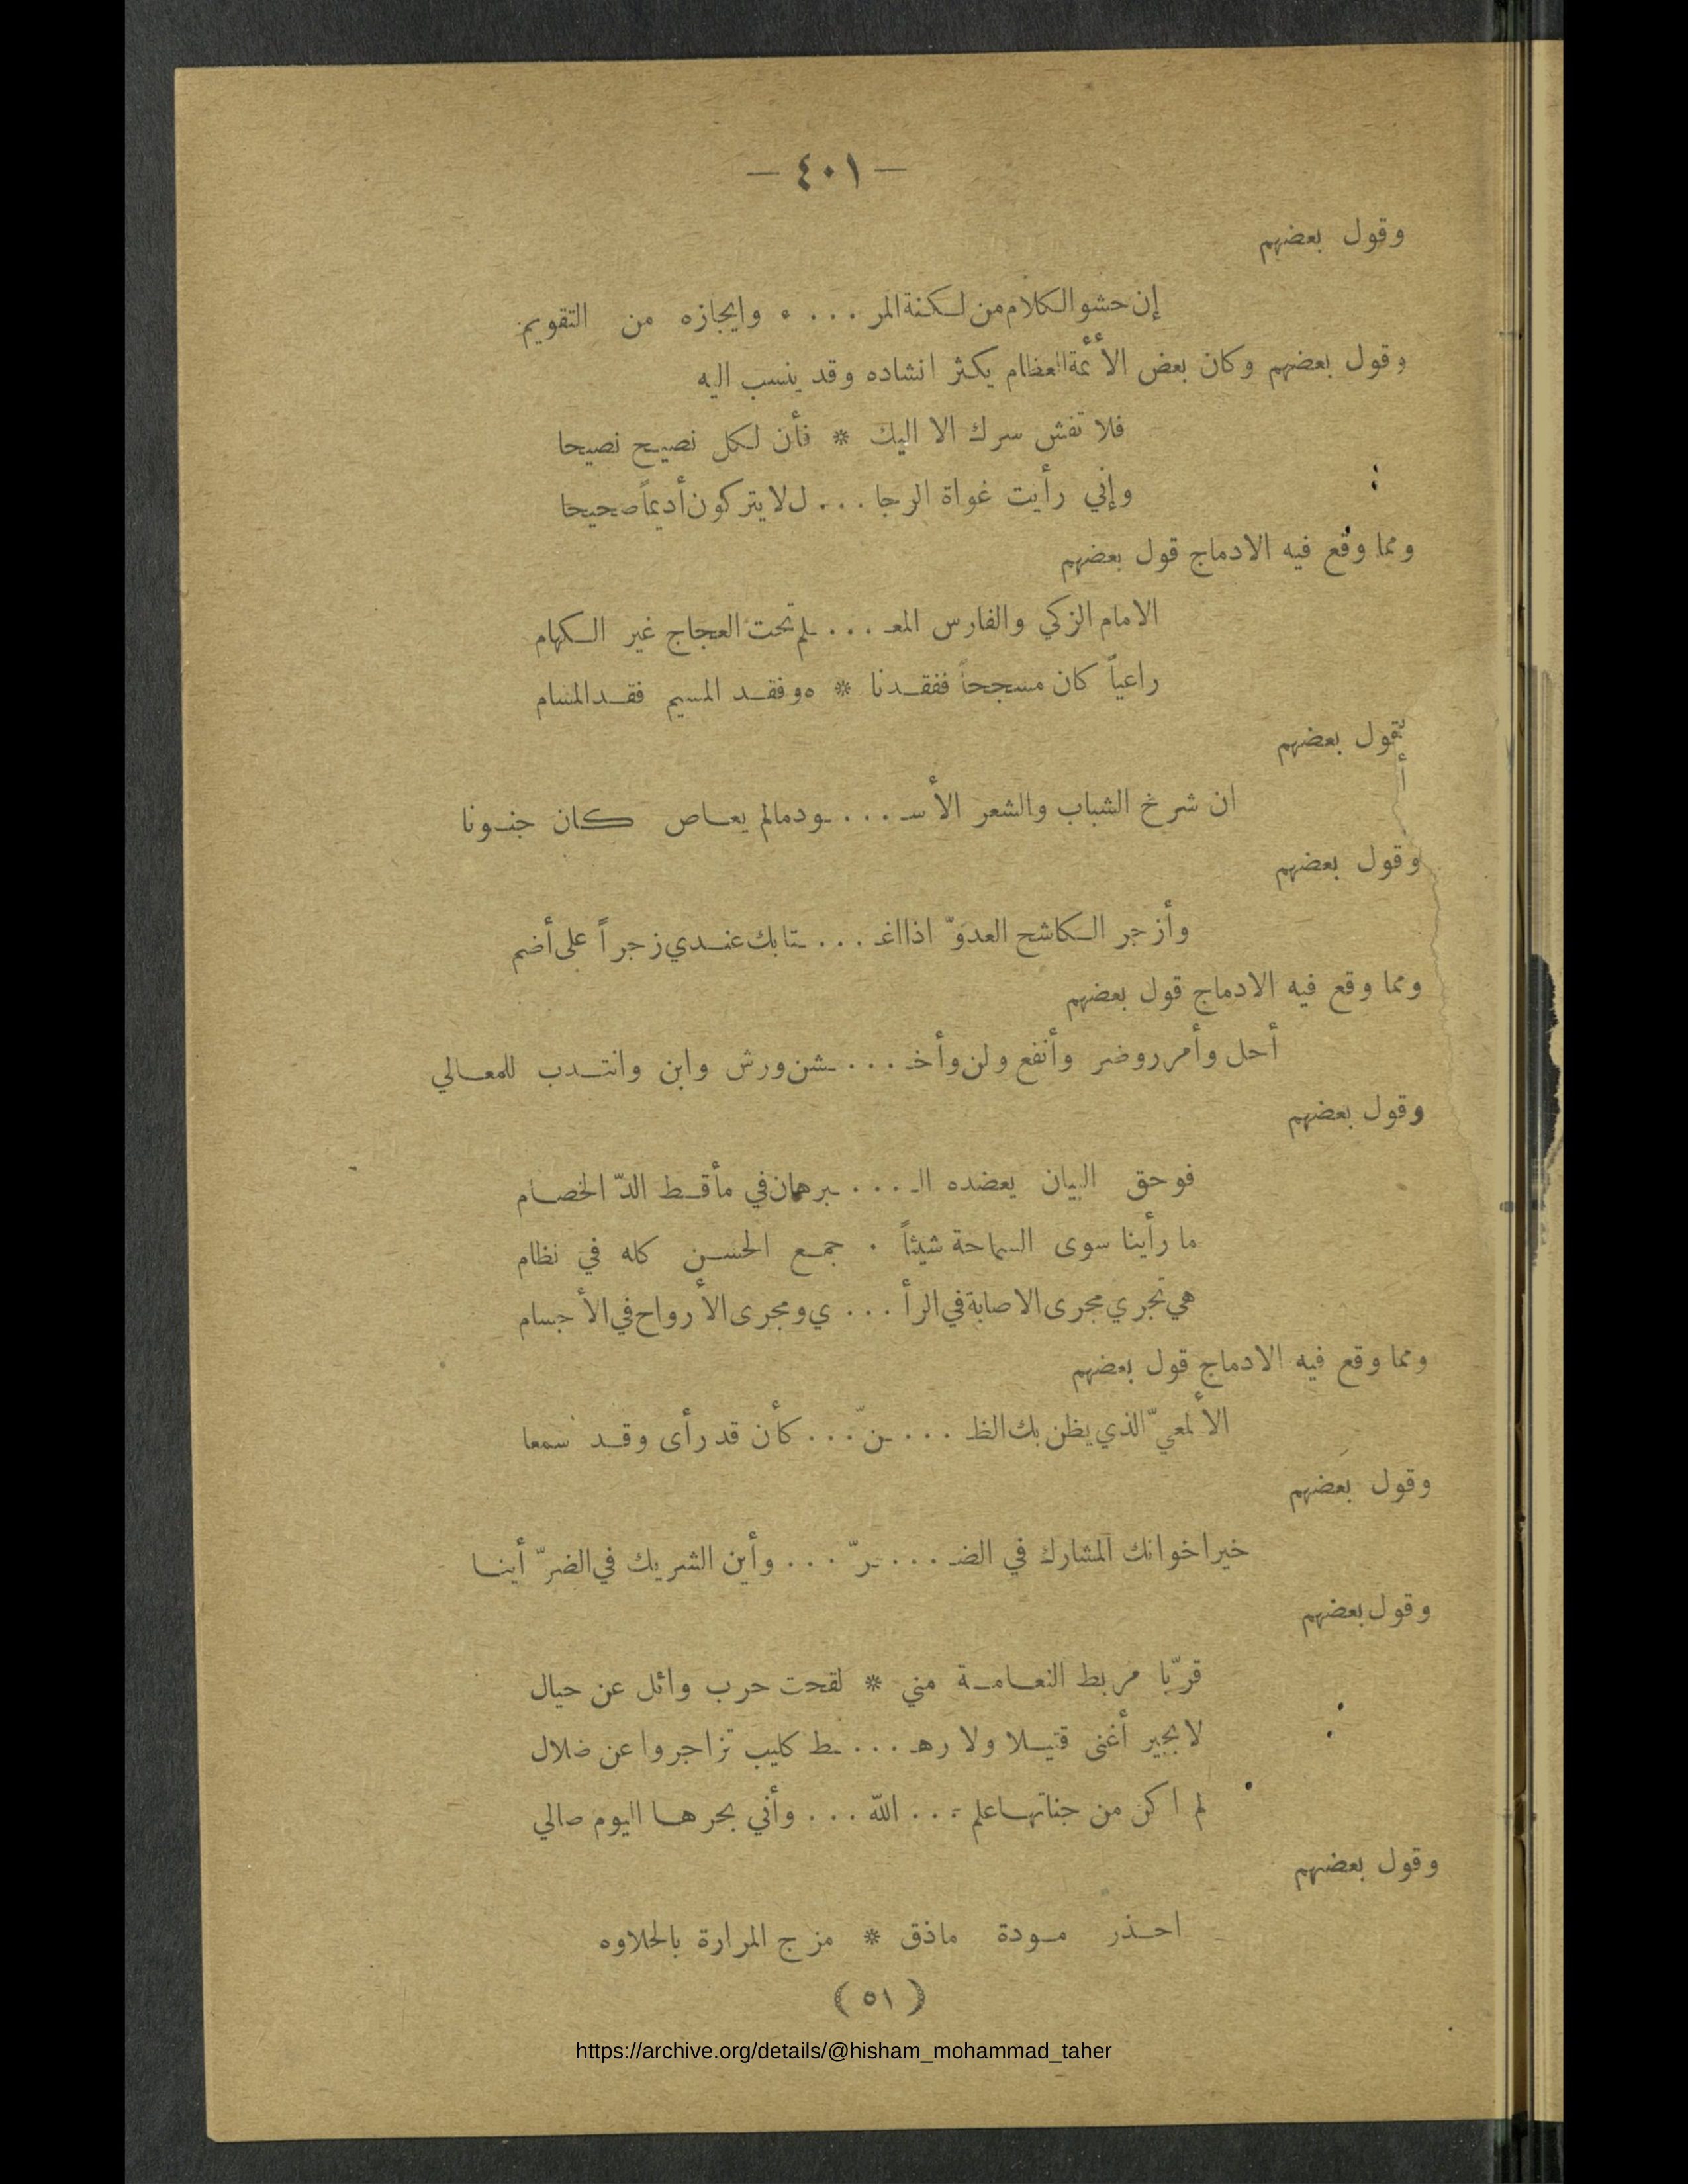 — ٤٠١ —
وقول بعضهم
إن حشو الكلام من لكنة المر . . . ء وايجازه من التقويم
وقول بعضهم وكان بعض الأئمة العظام يكثر انشاده وقد ينسب اليه
فلا تفش سرك الا اليك * فأن لكل نصيح نصيحا
وإني رأيت غواة الرجا . . . ل لا يتركون أديماً صحيحا
ومما وقع فيه الادماج قول بعضهم
الامام الزكي والفارس المعـ . . . ـلم تحت العجاج غير الكهام
راعياً كان مسجحاً ففقدنا * ه وفقد المسيم فقد المسام
قول بعضهم
ان شرخ الشباب والشعر الأسـ . . . ـود مالم يعاص كان جنونا
وقول بعضهم
وأزجر الكاشح العدوّ اذا اغـ . . . ـتابك عندي زجراً على أضم
ومما وقع فيه الادماج قول بعضهم
أحل وأمرر وضر وأنفع ولن وأخـ . . . ـشن ورش وابن وانتدب للمعالي
وقول بعضهم
فو حق البيان يعضده الـ . . . ـبرهان في مأقط الدّ الخصام
ما رأينا سوى السماحة شيئاً . جمع الحسن كله في نظام
هي تجري مجرى الاصابة في الرأ . . . ي ومجرى الأرواح في الأجسام
ومما وقع فيه الادماج قول بعضهم
الألمعيّ الذي يظن بك الظـ . . . ـنّ . . . كأن قد رأى وقد سمعا
وقول بعضهم
خير اخوانك المشارك في الضـ . . . ـرّ . . . وأين الشريك في الضرّ أينا
وقول بعضهم
قرّبا مربط النعامة مني * لقحت حرب وائل عن حيال
لا بجير أغنى قتيلا ولا رهـ . . . ـط كليب تزاجروا عن ضلال
لم اكن من جناتها علم . . . الله . . . وأني بحرها اليوم صالي
وقول بعضهم
احذر مودة ماذق * مزج المرارة بالحلاوه
( ٥١ )
https://archive.org/details/@hisham_mohammad_taher